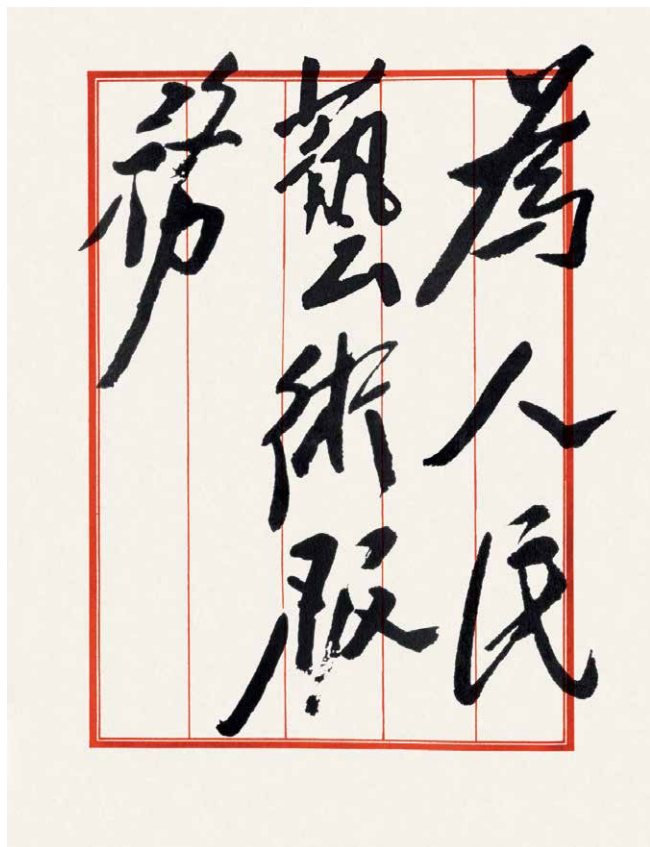 為人民
藝術服
務